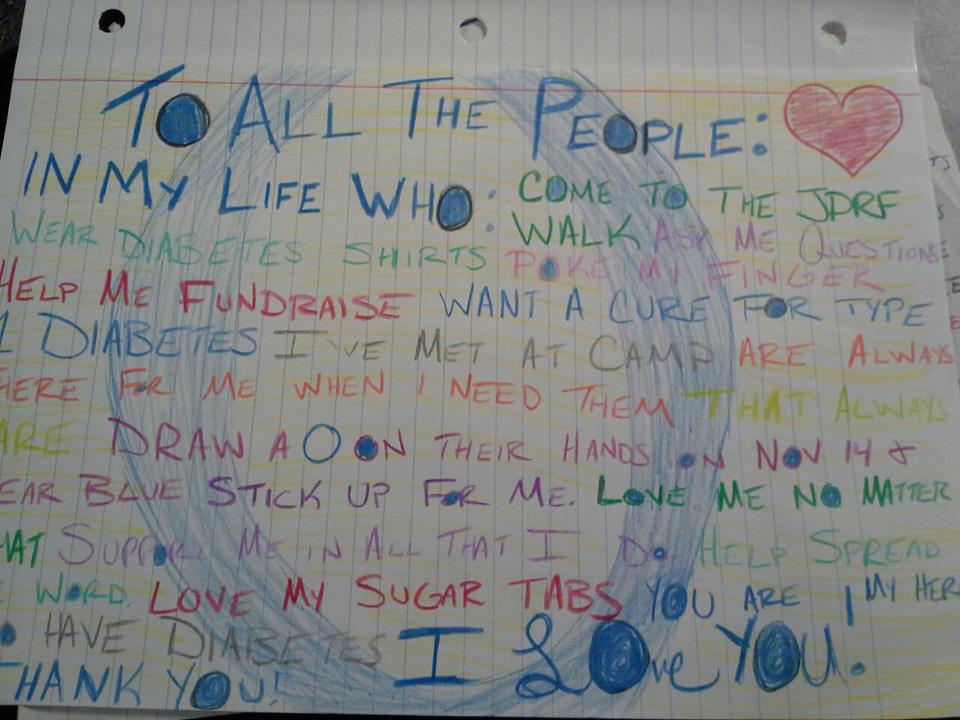 TO ALL THE PEOPLE:
IN MY LIFE WHO: COME TO THE JDRF
WEAR DIABETES SHIRTS WALK ASK ME QUESTIONS
POKE MY FINGER
HELP ME FUNDRAISE WANT A CURE FOR TYPE
1 DIABETES I'VE MET AT CAMP ARE ALWAYS
HERE FOR ME WHEN I NEED THEM THAT ALWAYS
ARE DRAW A O ON THEIR HANDS ON NOV 14 &
EAR BLUE STICK UP FOR ME. LOVE ME NO MATTER
HAT SUPPORT ME IN ALL THAT I DO. HELP SPREAD
E WORD. LOVE MY SUGAR TABS YOU ARE MY HER
O HAVE DIABETES I LOVE YOU!
THANK YOU!